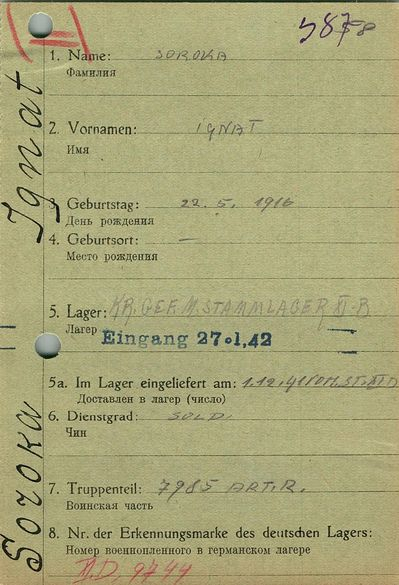 5878
1. Name: SOROKA
Фамилия
2. Vornamen: IGNAT
Имя
3. Geburtstag: 22. 5. 1916
День рождения
4. Geburtsort: —
Место рождения
5. Lager: KR. GEF. M. STAMMLAGER XI-B
Лагер
Eingang 27.1,42
5a. Im Lager eingeliefert am: 1.12.41 VOM. ST. XI D
Доставлен в лагер (число)
6. Dienstgrad: SOLD.
Чин
7. Truppenteil: 7985 ART. R.
Воинская часть
8. Nr. der Erkennungsmarke des deutschen Lagers:
Номер военнопленного в германском лагере
XI D, 9744
Soroka Ignat